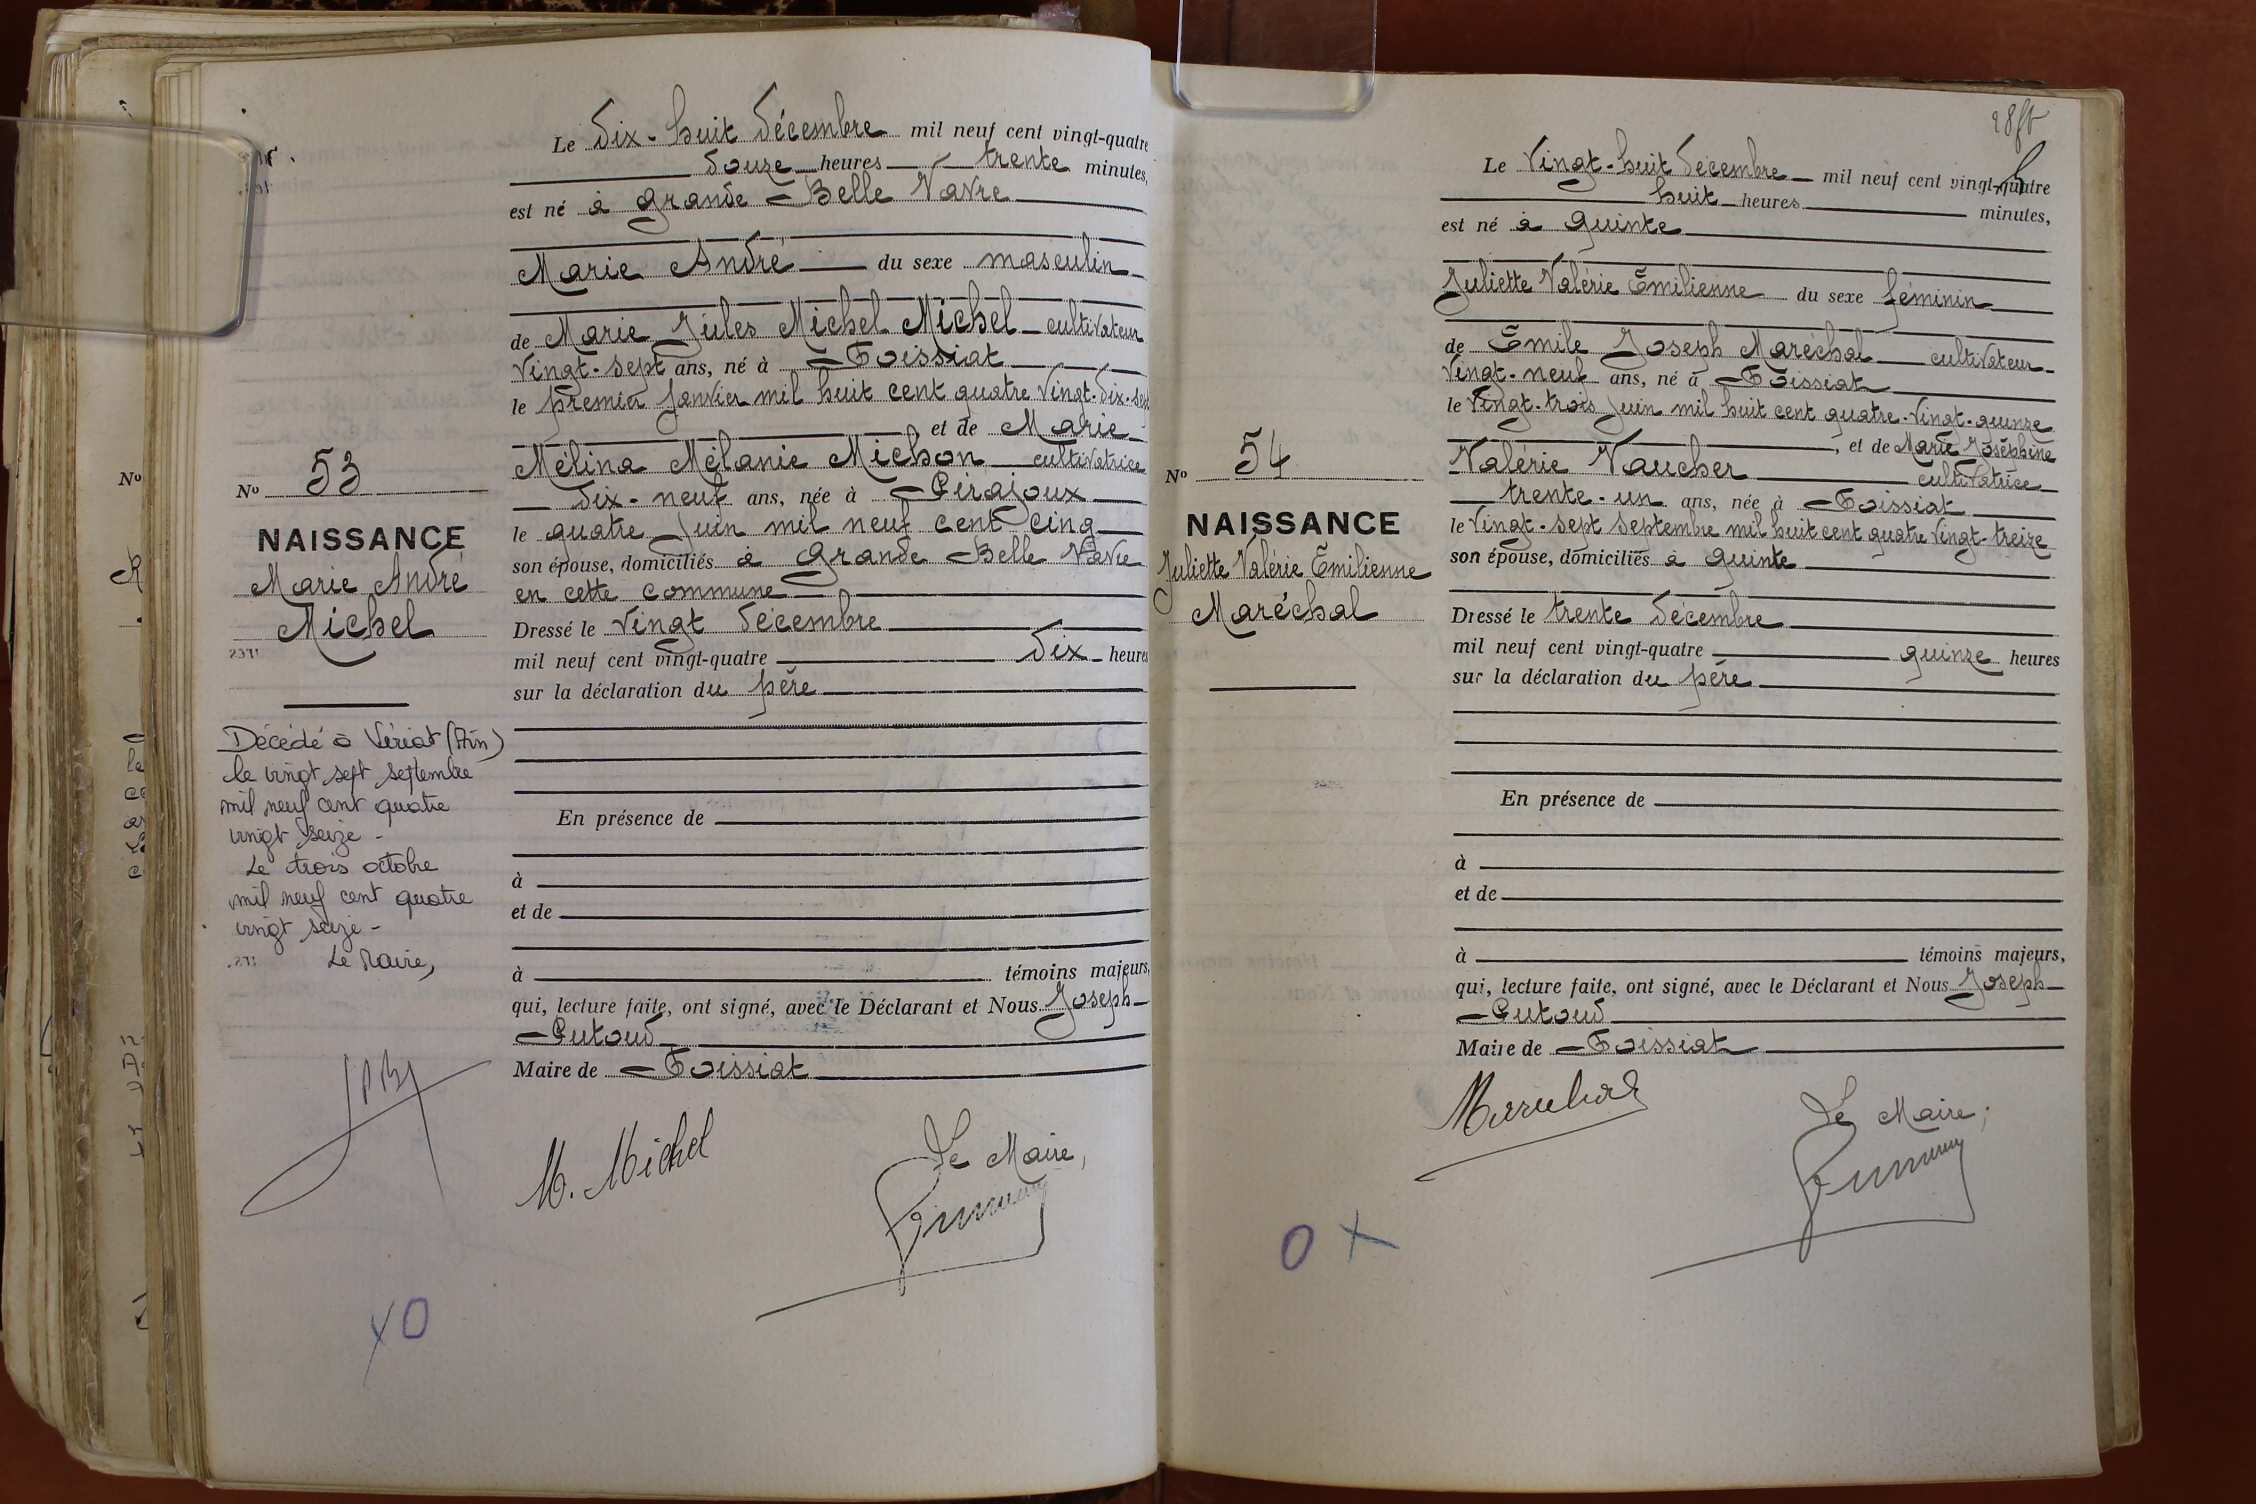 Le dix-huit décembre mil neuf cent vingt-quatre
douze heures trente minutes,
est né à Grande Belle Vavre
Marie André du sexe masculin
de Marie Jules Michel Michel cultivateur
vingt-sept ans, né à Foissiat
le premier janvier mil huit cent quatre vingt-dix-sept
et de Marie
Mélina Mélanie Michon cultivatrice
dix-neuf ans, née à Pirajoux
le quatre juin mil neuf cent cinq
son épouse, domiciliés à Grande Belle Vavre
en cette commune
Dressé le vingt décembre
mil neuf cent vingt-quatre dix heures
sur la déclaration du père
En présence de
à
et de
à témoins majeurs,
qui, lecture faite, ont signé, avec le Déclarant et Nous Joseph
Putoud
Maire de Foissiat
M. Michel
Le Maire,
No
No 53
NAISSANCE
Marie André
Michel
Décédé à Viriat (Ain)
le vingt sept septembre
mil neuf cent quatre
vingt seize -
Le trois octobre
mil neuf cent quatre
vingt seize -
Le Maire,
X O
28
Le vingt-huit décembre mil neuf cent vingt-quatre
huit heures minutes,
est né à Quinte
Juliette Valérie Emilienne du sexe féminin
de Emile Joseph Maréchal cultivateur
vingt-neuf ans, né à Foissiat
le vingt-trois juin mil huit cent quatre-vingt-quinze
, et de Marie Joséphine
Valérie Vaucher cultivatrice
trente-un ans, née à Foissiat
le vingt-sept septembre mil huit cent quatre vingt-treize
son épouse, domiciliés à Quinte
Dressé le trente décembre
mil neuf cent vingt-quatre quinze heures
sur la déclaration du père
En présence de
à
et de
à témoins majeurs,
qui, lecture faite, ont signé, avec le Déclarant et Nous Joseph
Putoud
Maire de Foissiat
Marechal
Le Maire,
No 54
NAISSANCE
Juliette Valérie Emilienne
Maréchal
O X